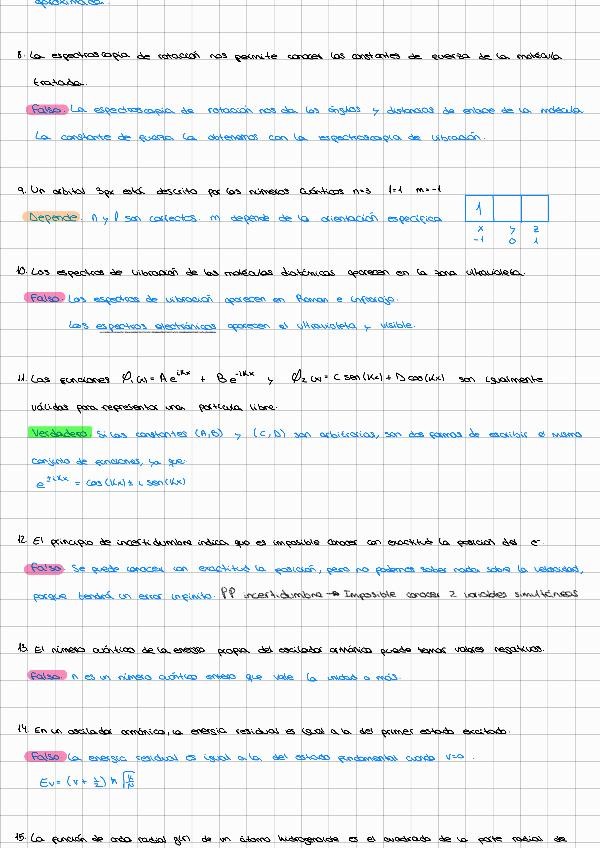 aproximada.
8. La espectroscopia de rotación nos permite conocer las constantes de fuerza de la molécula
tratada.
Falso. La espectroscopia de rotación nos da los ángulos y distancias de enlace de la molécula.
La constante de fuerza la obtenemos con la espectroscopia de vibración.
9. Un orbital 3px está descrito por los números cuánticos n=3 l=1 m=-1
Depende. n y l son correctos. m depende de la orientación específica
1
x y z
-1 0 1
10. Los espectros de vibración de las moléculas diatómicas aparecen en la zona ultravioleta.
Falso. Los espectros de vibración aparecen en Raman e infrarojo.
Los espectros electrónicos aparecen el ultravioleta y visible.
11. Las funciones φ₁(x) = A e^{iKx} + B e^{-iKx} y φ₂(x) = C sen(Kx) + D cos(Kx) son igualmente
válidas para representar una partícula libre.
Verdadero Si las constantes (A,B) y (C,D) son arbitrarias, son dos formas de escribir el mismo
conjunto de funciones, ya que:
e^{±iKx} = cos(Kx) ± i sen(Kx)
12. El principio de incertidumbre indica que es imposible conocer con exactitud la posición del e⁻
Falso. Se puede conocer con exactitud la posición, pero no podemos saber nada sobre la velocidad,
porque tendrá un error infinito. PP incertidumbre → Imposible conocer 2 variables simultáneas
13. El número cuántico de la energía propia del oscilador armónico puede tomar valores negativos.
Falso. n es un número cuántico entero que vale la unidad o más.
14. En un oscilador armónico, la energía residual es igual a la del primer estado excitado.
Falso La energía residual es igual a la del estado fundamental cuando v=0.
Ev = (v + 1/2) ħ √
15. La función de onda radial g(r) de un átomo hidrogenoide es el cuadrado de la parte radial de